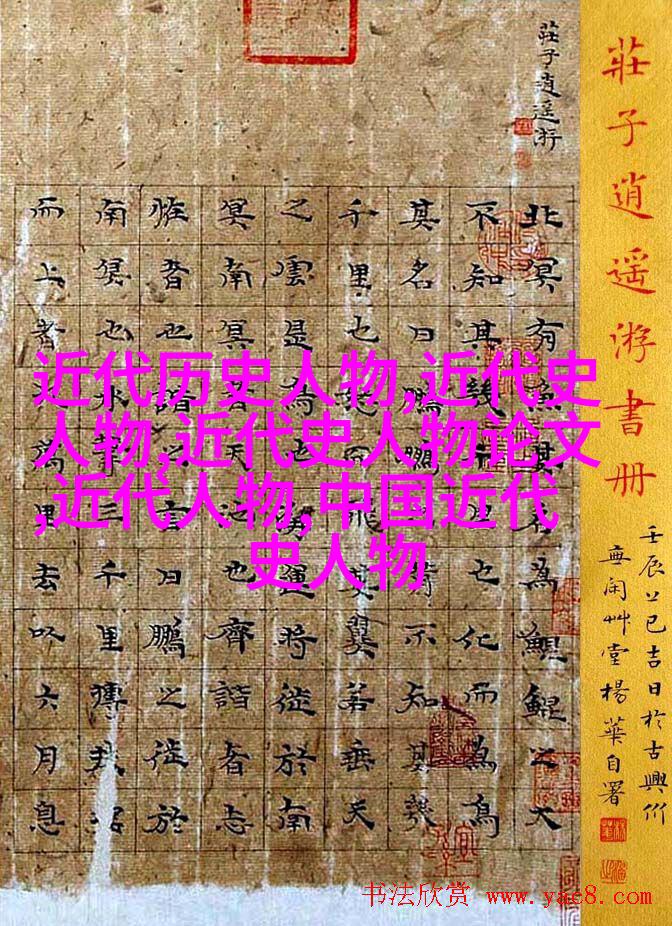 莊子逍遥游書册
壬辰上巳吉日於古興州
無閑艸堂楊華自署
莊子逍遥游
北冥有魚其名為鯤鯤之大
不知其幾千里也化而為鳥
其名曰鵬鵬之背不知其幾
千里也怒而飛其翼若垂天
之雲是鳥也海運將徙於南
冥南冥者天池也齊諧者志
怪者也諧之言曰鵬之徙於
南冥也水擊三千里摶扶搖
而上者九萬里去以六月息
近代历史人物,近代史
人物,近代史人物论文
,近代人物,中国近代
史人物
书法欣赏 www.yac8.com